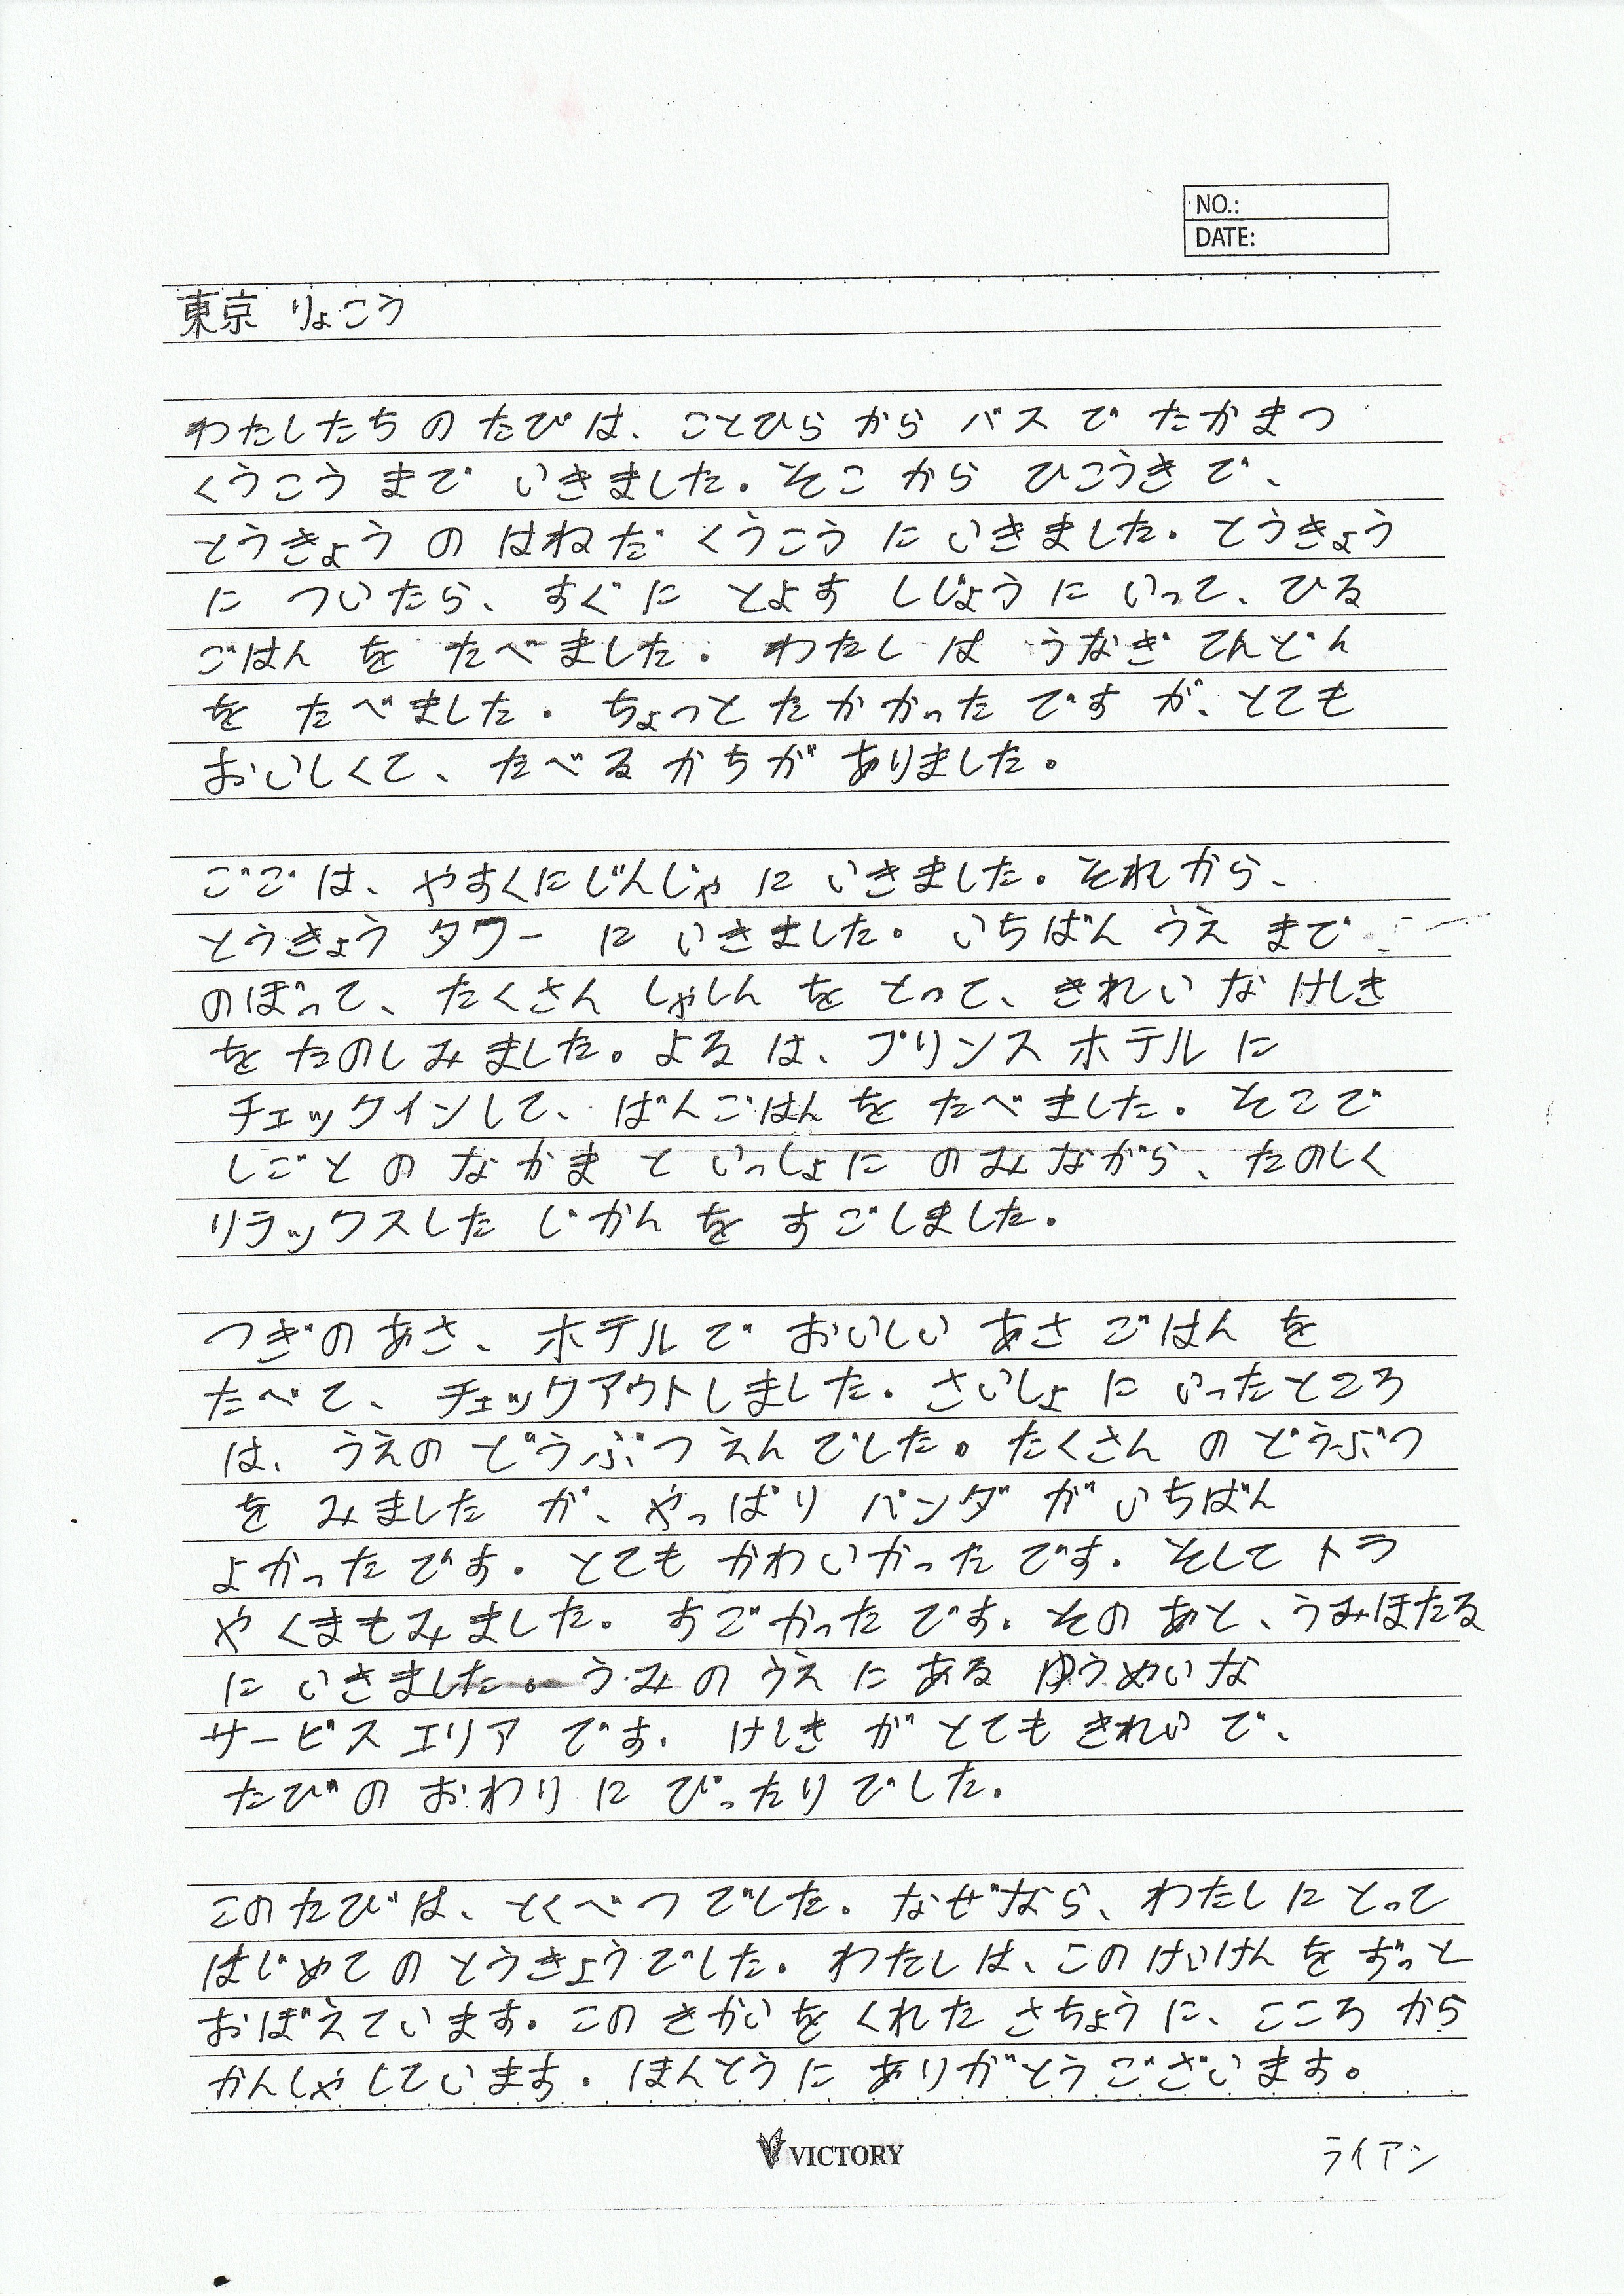 NO.:
DATE:
東京 りょこう
わたしたち の たび は、ことひら から バス で たかまつ
くうこう まで いきました。そこ から ひこうき で、
とうきょう の はねだ くうこう に いきました。とうきょう
に ついたら、すぐ に とよす しじょう に いって、ひる
ごはん を たべました。わたし は うなぎ てんどん
を たべました。ちょっと たかかった です が、とても
おいしくて、たべる かちが ありました。
ごご は、やすくにじんじゃ に いきました。それから、
とうきょう タワー に いきました。いちばん うえ まで
のぼって、たくさん しゃしん を とって、きれい な けしき
を たのしみました。よる は、プリンス ホテル に
チェックインして、ばんごはん を たべました。そこで
しごと の なかま と いっしょに のみながら、たのしく
リラックスした じかん を すごしました。
つぎの あさ、ホテル で おいしい あさ ごはん を
たべて、チェックアウトしました。さいしょ に いったところ
は、うえの どうぶつ えん でした。たくさん の どうぶつ
を みました が、やっぱり パンダ が いちばん
よかった です。とても かわいかった です。そして トラ
や くまもみました。すごかった です。その あと、うみほたる
に いきました。うみ の うえ に ある ゆうめい な
サービス エリア です。けしき が とても きれい で、
たび の おわり に ぴったり でした。
この たび は、とくべつ でした。なぜなら、わたし に とって
はじめて の とうきょう でした。わたし は、この けいけん を ずっと
おぼえています。この きかい を くれた さちょう に、こころ から
かんしゃ しています。ほんとう に ありがとう ございます。
VICTORY
ライアン